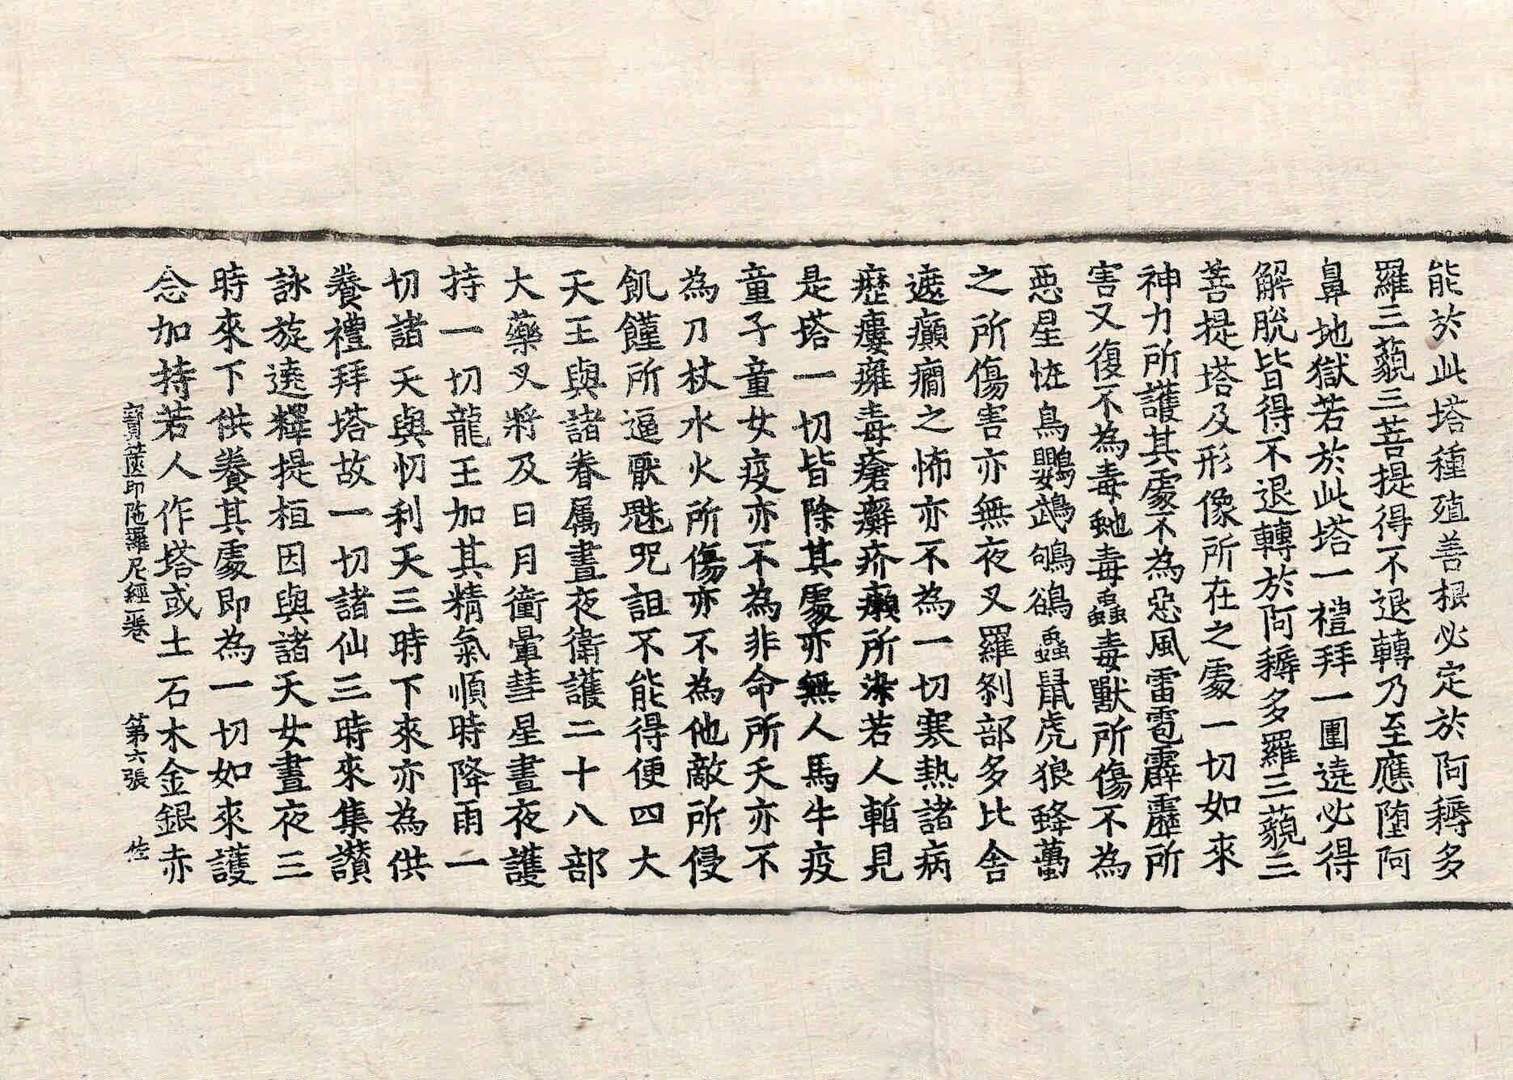 能於此塔種殖善根必定於阿耨多
羅三藐三菩提得不退轉乃至應墮阿
鼻地獄若於此塔一禮拜一圍遶必得
解脫皆得不退轉於阿耨多羅三藐三
菩提塔及形像所在之處一切如來
神力所護其處不為惡風雷雹霹靂所
害又復不為毒虵毒蟲毒獸所傷不為
惡星恠鳥鸚鵡鴝鵒蟲鼠虎狼蜂蠆
之所傷害亦無夜叉羅剎部多比舍
遮癲癇之怖亦不為一切寒熱諸病
瘂瘻癰毒瘡癬疥癩所染若人暫見
是塔一切皆除其處亦無人馬牛疫
童子童女疫亦不為非命所夭亦不
為刀杖水火所傷亦不為他敵所侵
飢饉所逼厭魅呪詛不能得便四大
天王與諸眷屬晝夜衛護二十八部
大藥叉將及日月衝暈彗星晝夜護
持一切龍王加其精氣順時降雨一
切諸天與忉利天三時下來亦為供
養禮拜塔故一切諸仙三時來集讚
詠旋遶釋提桓因與諸天女晝夜三
時來下供養其處即為一切如來護
念加持若人作塔或土石木金銀赤
寶篋印陁羅尼經一卷 第六張